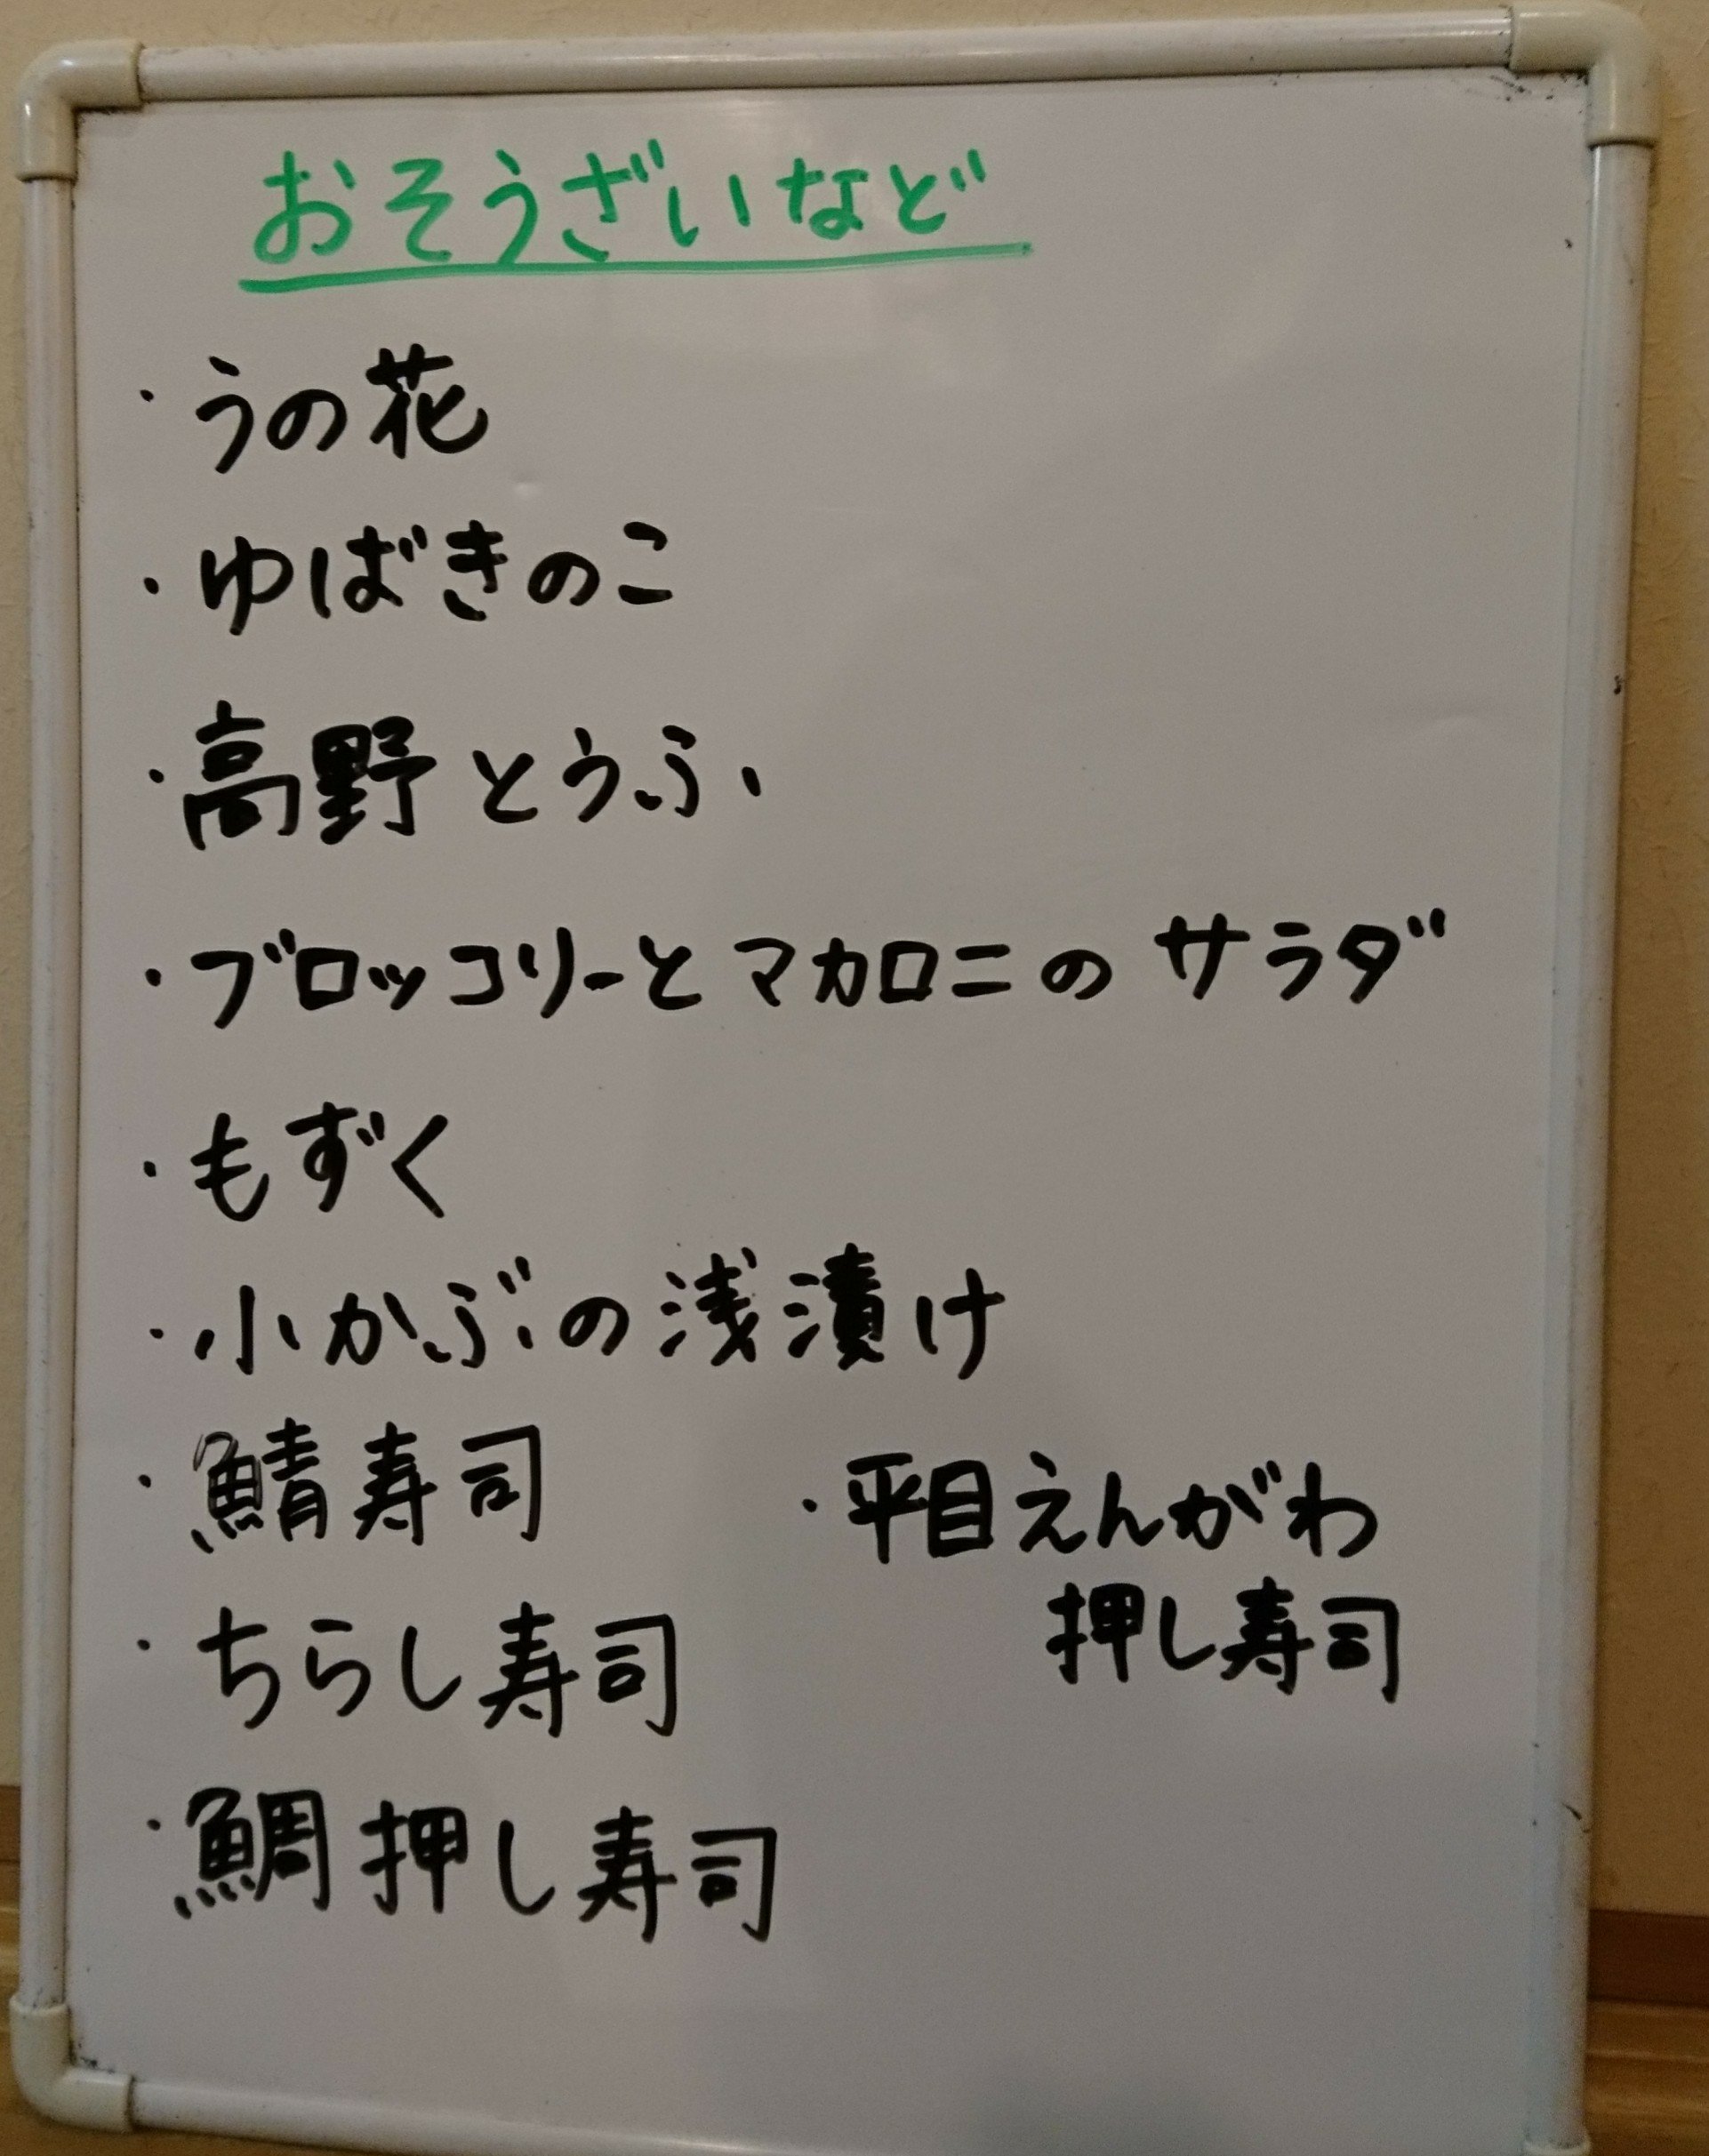 おそうざいなど
・うの花
・ゆばきのこ
・高野とうふ
・ブロッコリーとマカロニのサラダ
・もずく
・小かぶの浅漬け
・鯖寿司
・ちらし寿司
・鯛押し寿司
・平目えんがわ
押し寿司